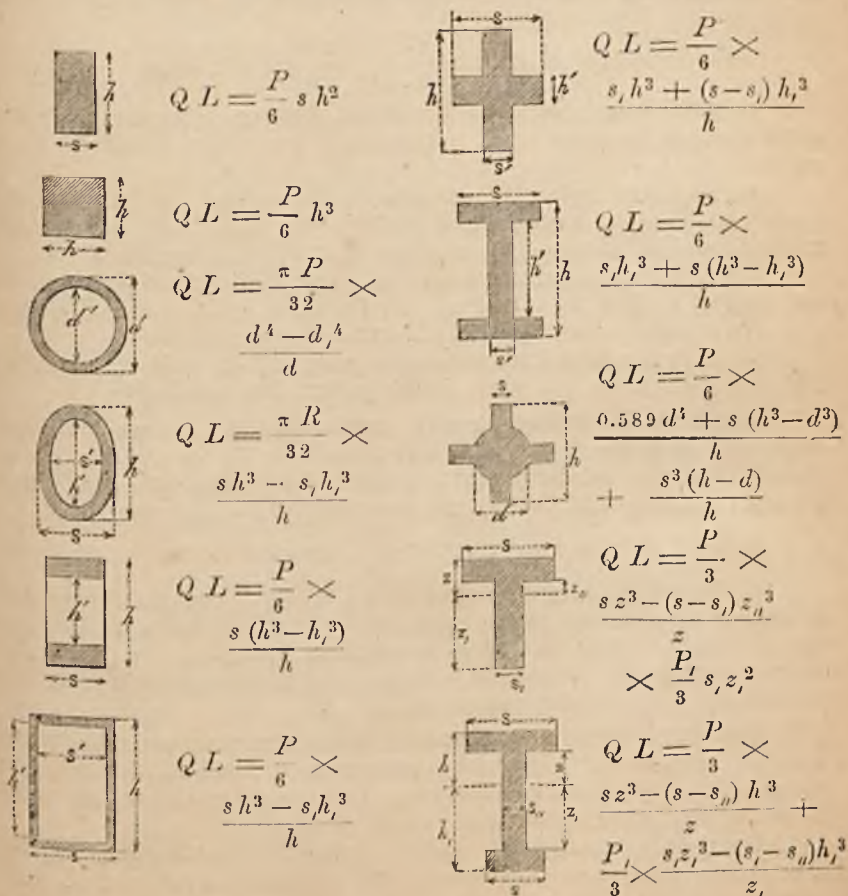 h
s
Q L = P/6 s h²
h
h
Q L = P/6 h³
d'
d
Q L = π P/32 ×
d⁴ — d,⁴ / d
s'
h'
h
s
Q L = π R/32 ×
s h³ - s, h,³ / h
h'
h
s
Q L = P/6 ×
s (h³ — h,³) / h
h'
s'
h
s
Q L = P/6 ×
s h³ — s, h,³ / h
s
h
h'
s'
Q L = P/6 ×
s, h³ + (s — s,) h,³ / h
s
h'
h
s'
Q L = P/6 ×
s, h,³ + s (h³ — h,³) / h
s
h
d
Q L = P/6 ×
0.589 d⁴ + s (h³ — d³) / h
+ s³ (h — d) / h
s
z
z,,
z,
s,
Q L = P/3 ×
s z³ — (s — s,) z,,³ / z
× P,/3 s, z,²
s
h
z
s,,
z,
h,
s
Q L = P/3 ×
s z³ — (s — s,,) h³ / z +
P,/3 × s, z,³ — (s, — s,,) h,³ / z,